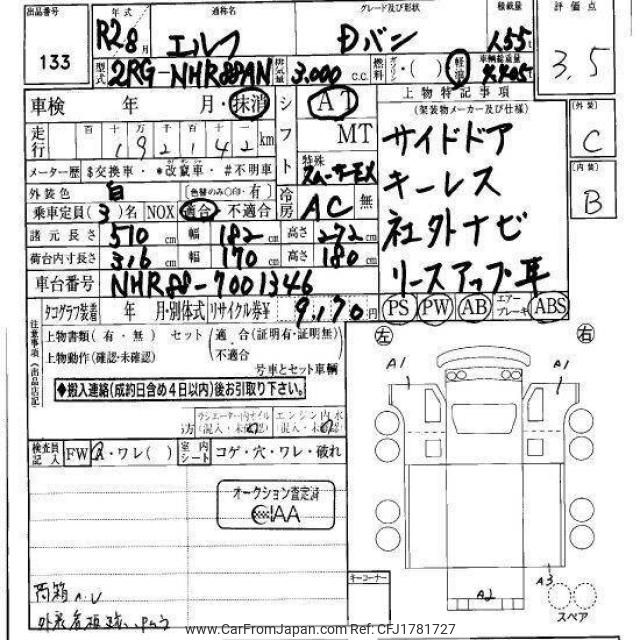 出品番号
133
年式
R2 8月
通称名
エルフ
グレード及び形状
Dバン
積載量
1.55t
評価点
3.5
型式
2RG-NHR88AN
排気量
3,000 c.c.
燃料
ガソリン・( ) 軽油
車輌総重量
車検 年 月・抹消
シフト
AT
MT
上物特記事項
(架装物メーカー及び仕様)
サイドドア
キーレス
社外ナビ
リースアップ車
外装
C
内装
B
走行
百 十 万 千 百 十
192142 km
メーター歴 $交換車・*改竄車・#不明車
特殊
スムーサーEX
外装色
白
(色替のみ〇印・有)
冷房
AC 無
乗車定員(3)名 NOX 適合・不適合
諸元長さ 510 cm 幅 182 cm 高さ 272 cm
荷台内寸長さ 316 cm 幅 170 cm 高さ 180 cm
車台番号
NHR88-7001346
PS PW AB エアーブレーキ ABS
タコグラフ装着 年 月・別体式 リサイクル券¥ 9,170 円
注意事項(出品店記)
上物書類(有・無) セット (適合(証明有・証明無)
上物動作(確認・未確認) 不適合
号車とセット車輌
◆搬入連絡(成約日含め4日以内)後お引取り下さい。
左
右
A1
A1
ラジエーター内オイル エンジン内水
(混入・未確認) (混入・未確認)
検査員記入
FW A・ワレ( )
室内シート
コゲ・穴・ワレ・破れ
オークション査定済
CIAA
荷箱A.U
キーコーナー
A2
A3
スペア
www.CarFromJapan.com Ref: CFJ1781727